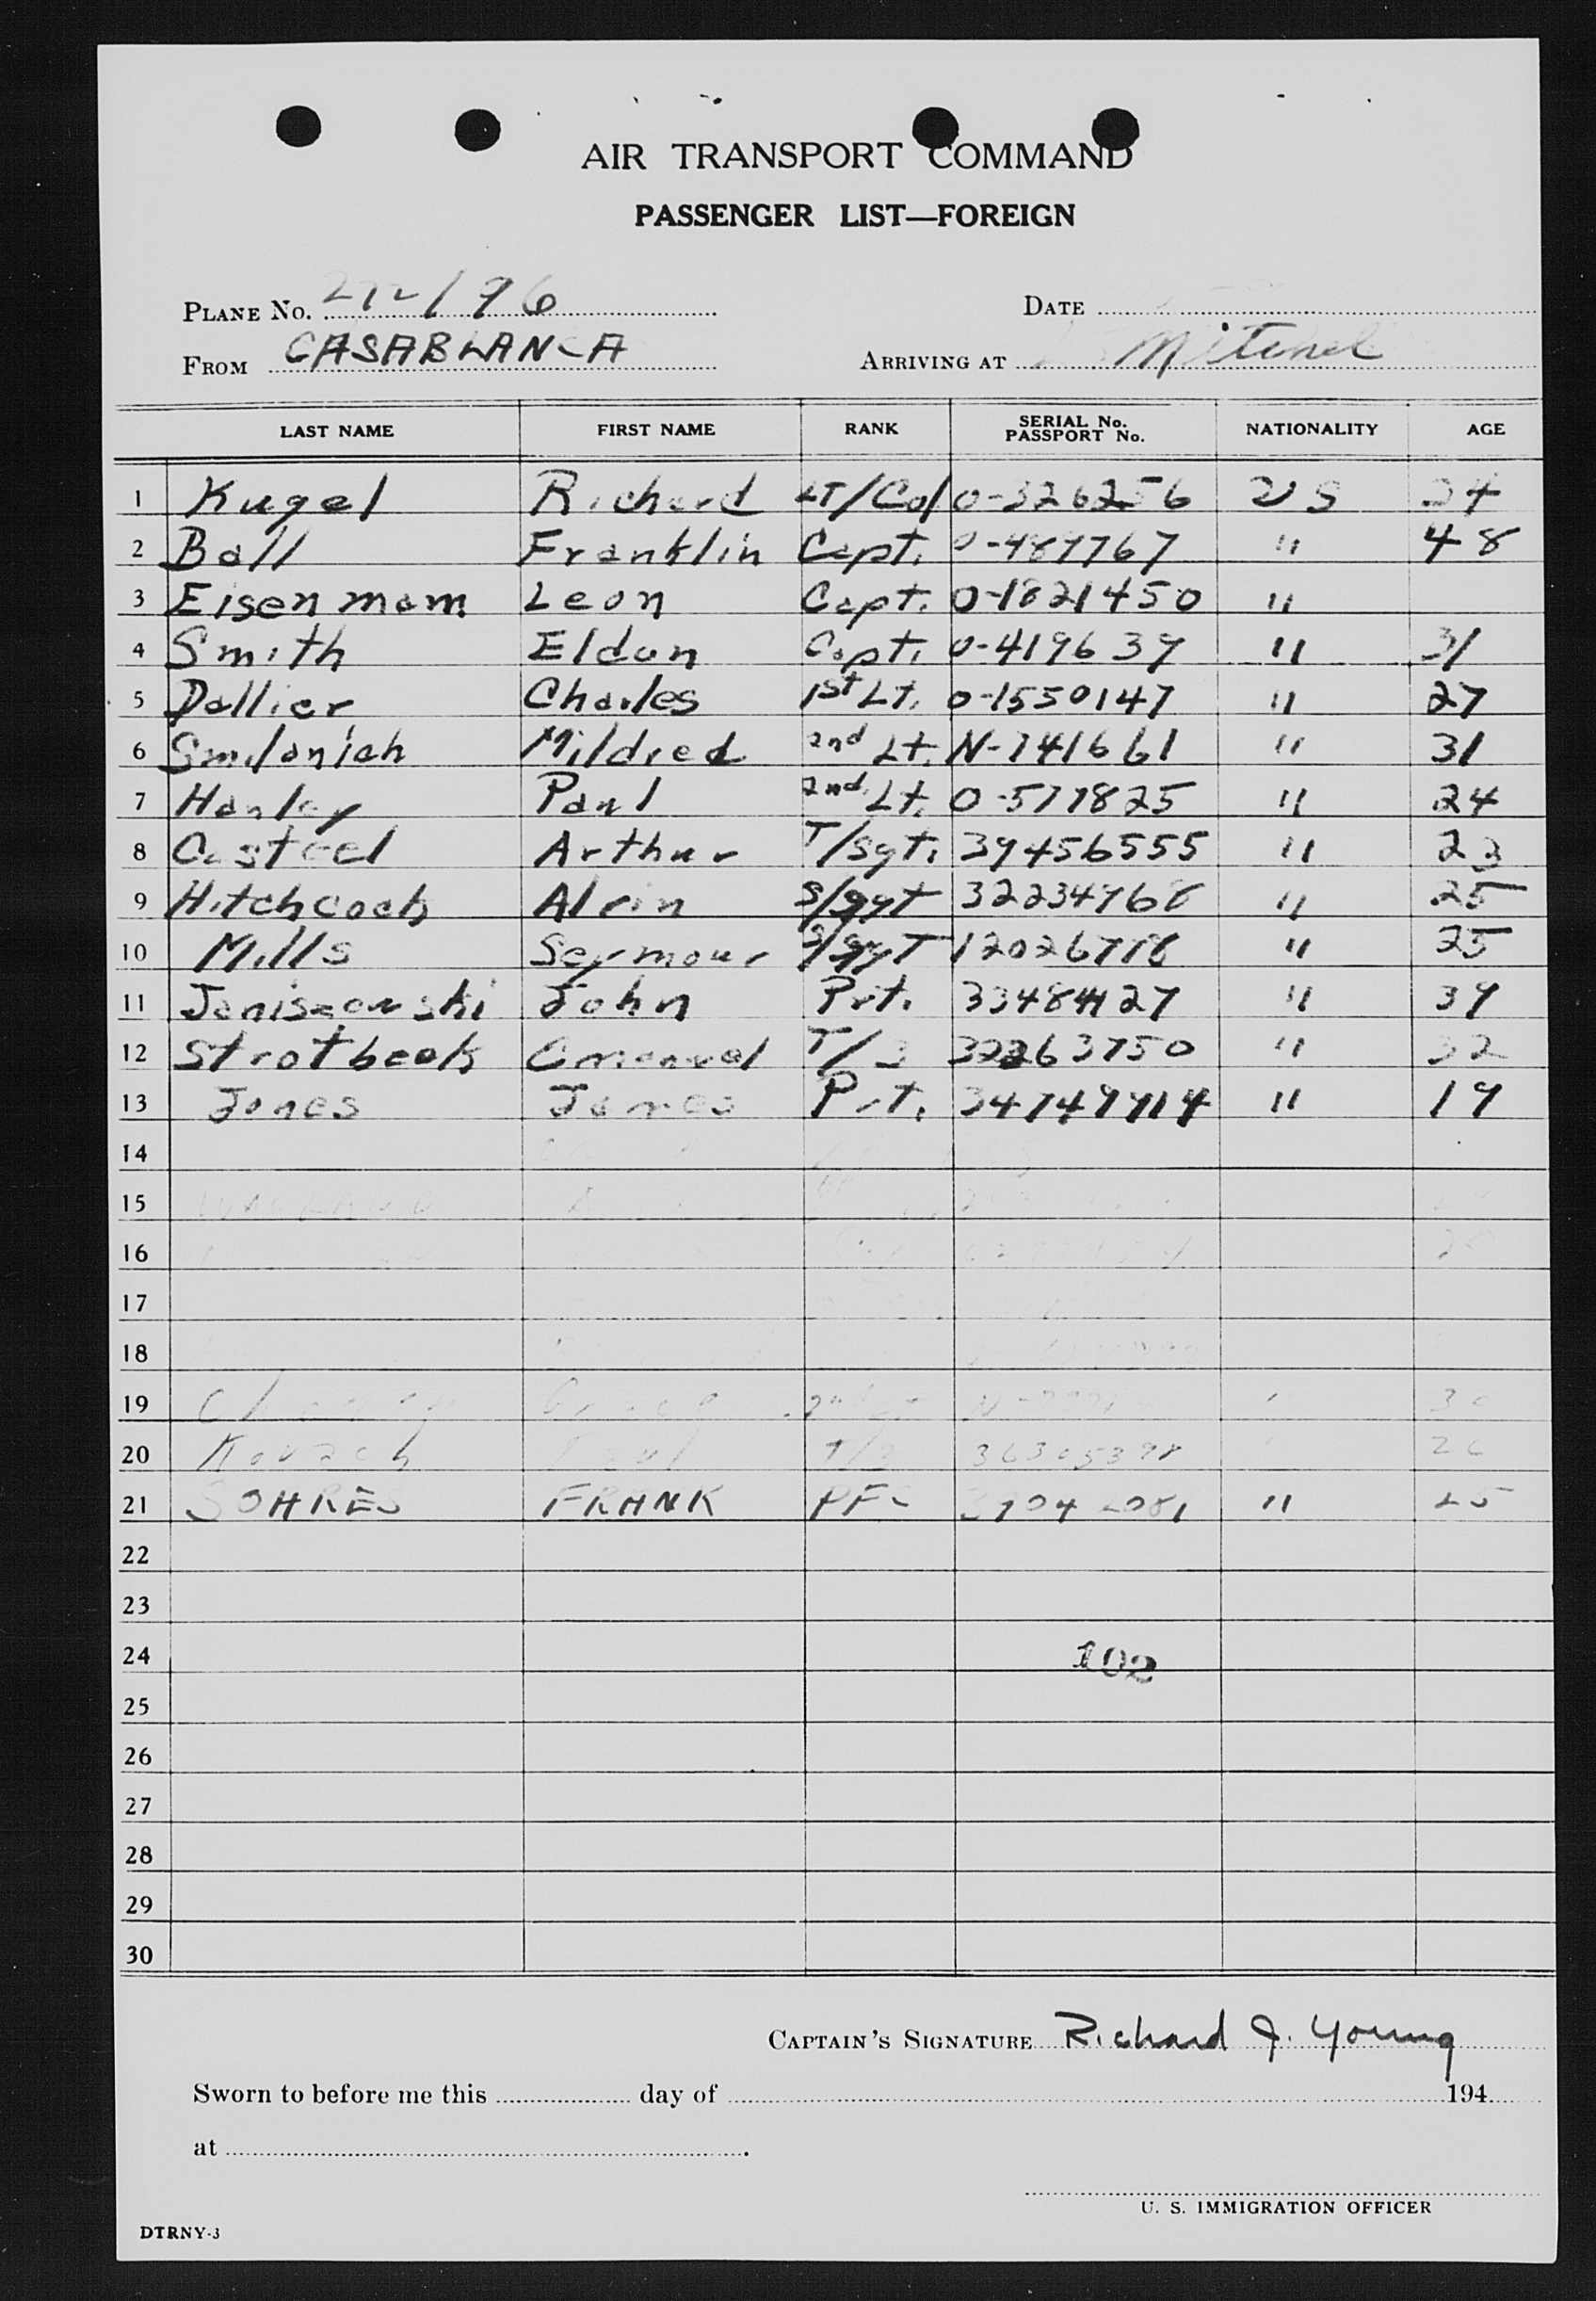 AIR TRANSPORT COMMAND
PASSENGER LIST—FOREIGN
PLANE No. 272196 DATE
FROM CASABLANCA ARRIVING AT Mitchel
LAST NAME FIRST NAME RANK SERIAL No. PASSPORT No. NATIONALITY AGE
1 Kugel Richard LT/Col O-326256 US 34
2 Ball Franklin Capt. O-489767 " 48
3 Eisenmam Leon Capt. O-1821450 "
4 Smith Eldon Capt. O-419639 " 31
5 Dallier Charles 1st Lt. O-1550147 " 27
6 Mildred 2nd Lt. N-741661 " 31
7 Hanley Paul 2nd Lt. O-577825 " 24
8 Casteel Arthur T/Sgt. 39456555 " 23
9 Hitchcock Alvin S/Sgt 32234968 " 25
10 Mills Seymour S/Sgt 12026718 " 25
11 Janiszewski John Pvt. 33484127 " 39
12 Strotbeck Emanuel T/3 32263750 " 32
13 Jones James Pvt. 34749914 " 19
14
15
16
17
18
19 30
20 Kovach Paul T/3 36305398 26
21 SOARES FRANK PFC " 25
22
23
24 102
25
26
27
28
29
30
CAPTAIN'S SIGNATURE Richard J. Young
Sworn to before me this day of 194
at
U. S. IMMIGRATION OFFICER
DTRNY-3